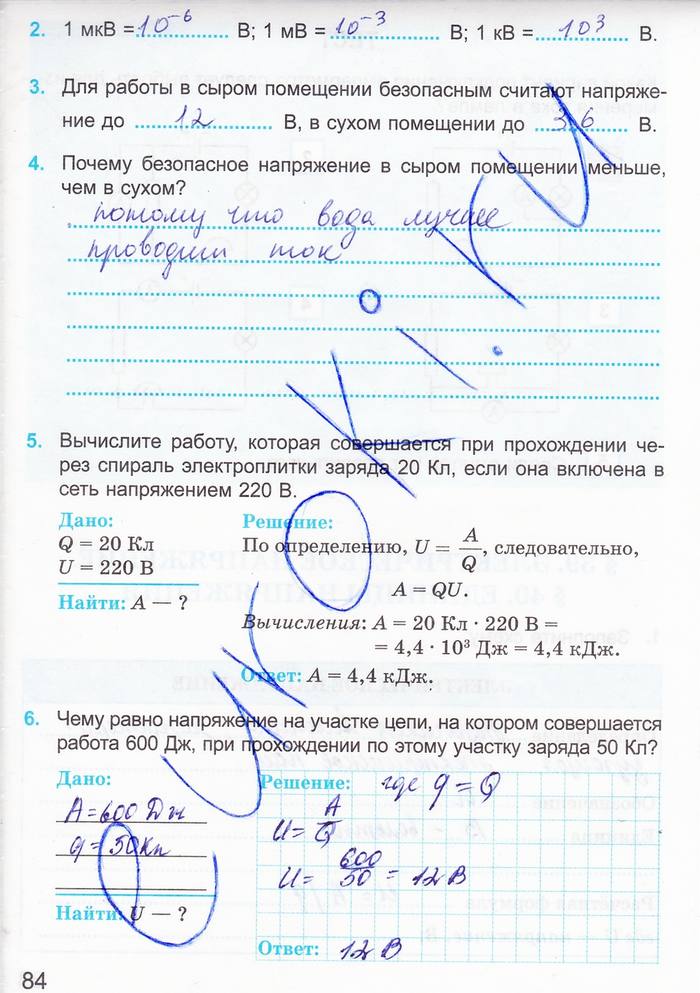 2. 1 мкВ = 10⁻⁶ В; 1 мВ = 10⁻³ В; 1 кВ = 10³ В.
3. Для работы в сыром помещении безопасным считают напряже-
ние до 12 В, в сухом помещении до 36 В.
4. Почему безопасное напряжение в сыром помещении меньше,
чем в сухом?
потому что вода лучше
проводит ток
5. Вычислите работу, которая совершается при прохождении че-
рез спираль электроплитки заряда 20 Кл, если она включена в
сеть напряжением 220 В.
Дано: Решение:
Q = 20 Кл
U = 220 В
По определению, U = A/Q, следовательно,
Найти: A — ?
A = QU.
Вычисления: A = 20 Кл · 220 В =
= 4,4 · 10³ Дж = 4,4 кДж.
Ответ: A = 4,4 кДж.
6. Чему равно напряжение на участке цепи, на котором совершается
работа 600 Дж, при прохождении по этому участку заряда 50 Кл?
Дано: Решение: где q = Q
A = 600 Дж
q = 50 Кл
U = A/Q
U = 600/50 = 12 В
Найти: U — ?
Ответ: 12 В
84